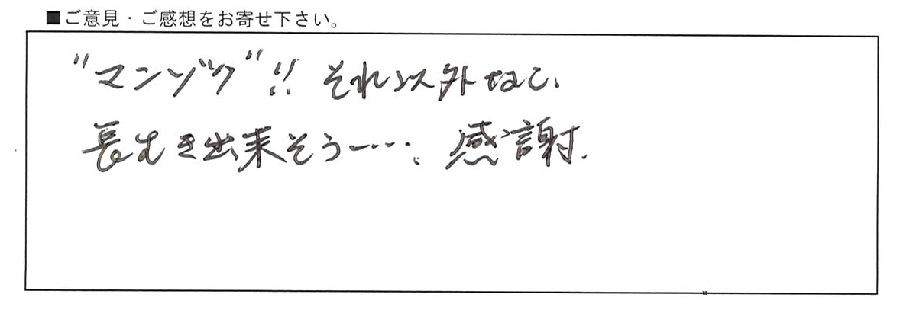 ■ご意見・ご感想をお寄せ下さい。
"マンゾク"!! それ以外なし、
長むき出来そうー…、感謝.